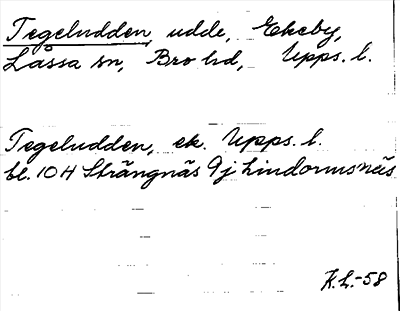 Tegeludden, udde, Ekeby,
Låssa sn, Bro hd, Upps. l.
Tegeludden, ek. Upps. l.
bl. 10 H Strängnäs 9j Lindormsnäs
K.L.-58